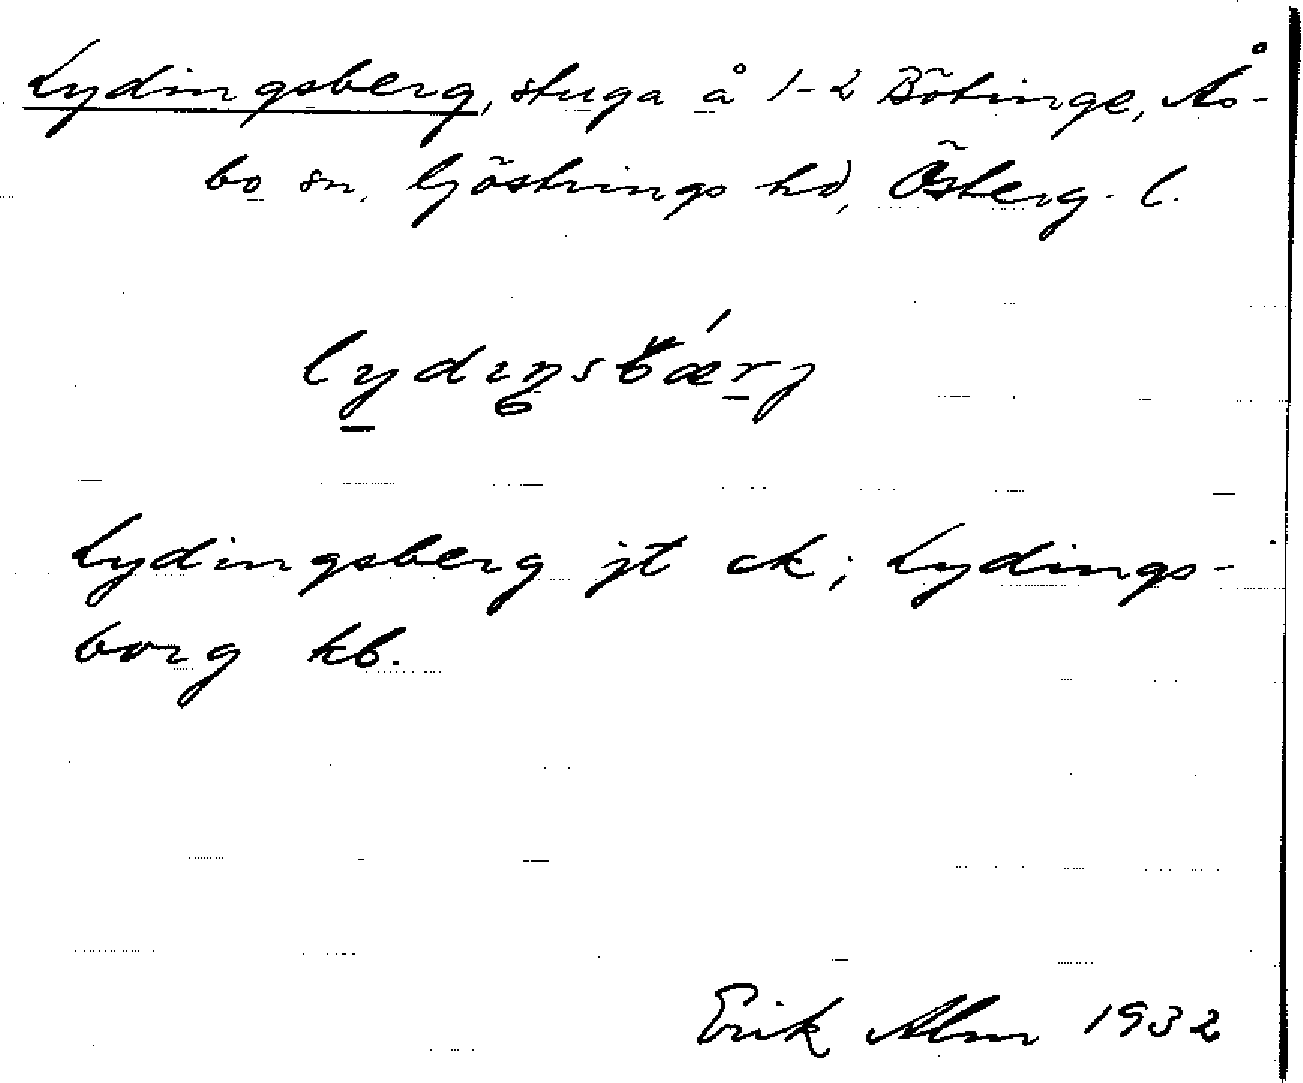 Lydingsberg, stuga å 1-2 Bötinge, Ås-
bo sn, Göstrings hd, Österg. l.
Lydingsberg jt ck; Lydings-
borg kb.
Erik Alm 1932